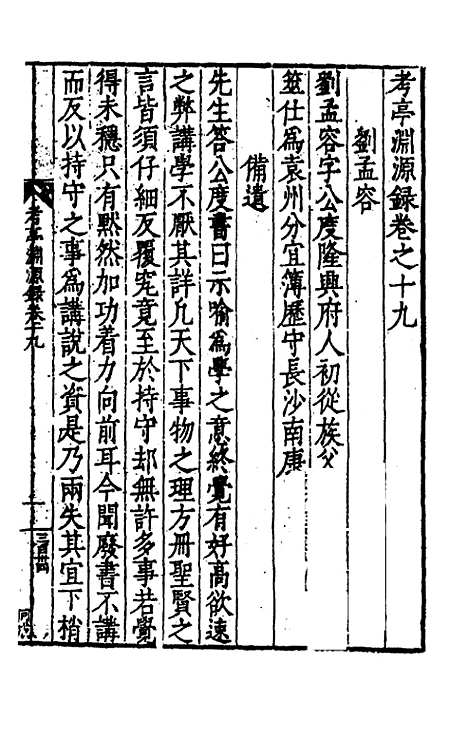 考亭淵源録卷之十九
劉孟容
劉孟容字公度隆興府人初從族父
筮仕爲袁州分宜簿歷守長沙南康
備遺
先生答公度書曰示喻爲學之意終覺有好高欲速
之弊講學不厭其詳凡天下事物之理方冊聖賢之
言皆須仔細反覆究竟至於持守却無許多事若覺
得未穩只有黙然加功着力向前耳今聞廢書不講
而反以持守之事爲講說之資是乃兩失其宜下梢
考亭淵源録卷十九